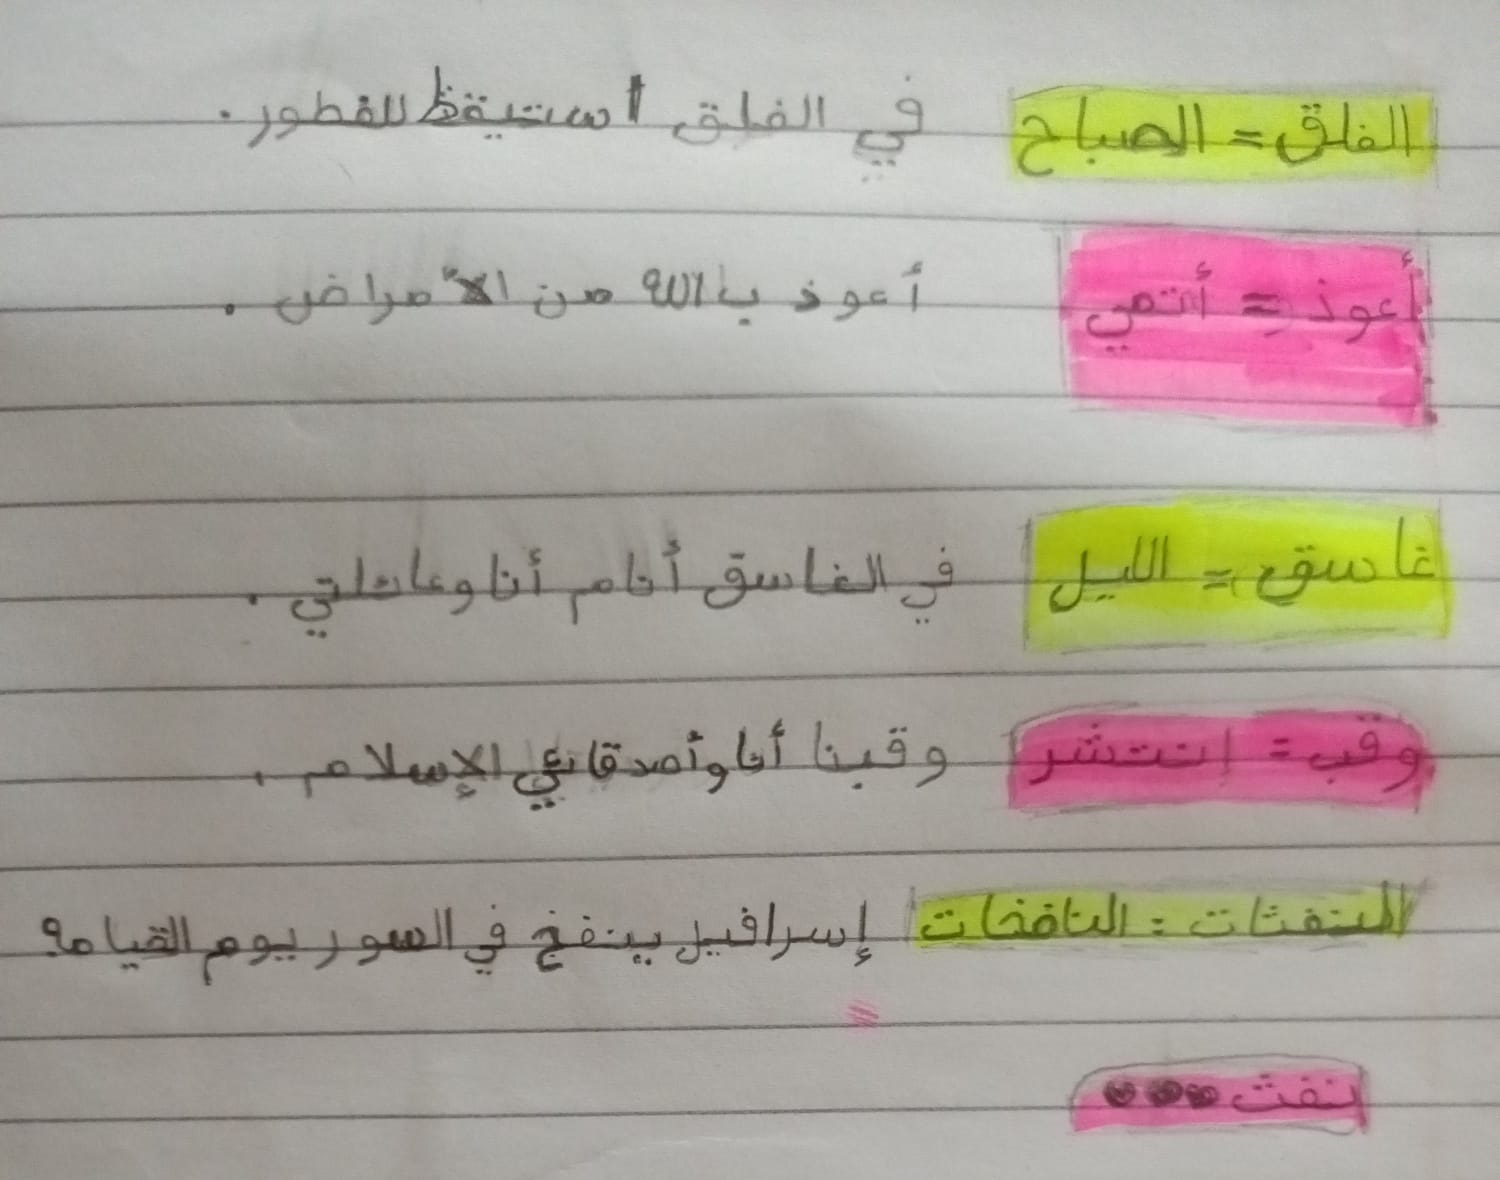 الفلق = الصباح في الفلق استيقظ للفطور.
أعوذ = أنتمي أعوذ بالله من الأمراض.
غاسق = الليل في الغاسق أنام أنا وعائلتي.
وقب = إنتشر وقبنا أنا وأصدقائي الإسلام.
النفثات : النافخات إسرافيل ينفخ في السور يوم القيامة
نفث